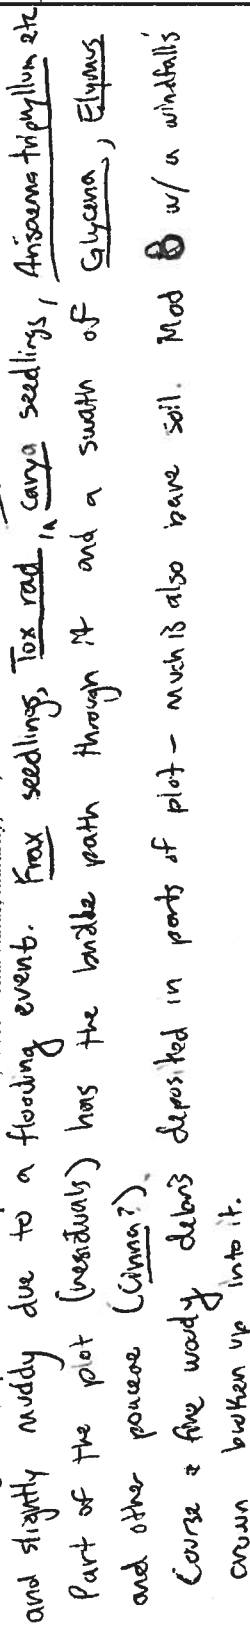 and slightly muddy due to a flooding event. Frax seedlings, Tox rad, Carya seedlings, Arisaema triphyllum etc
Part of the plot (residuals) has the bridle path through it and a swath of Glyceria, Elymus
and other poaceae (Cinna?).
Coarse & fine woody debris deposited in parts of plot - much is also bare soil. Mod 8 w/ a windfalls
crown broken up into it.